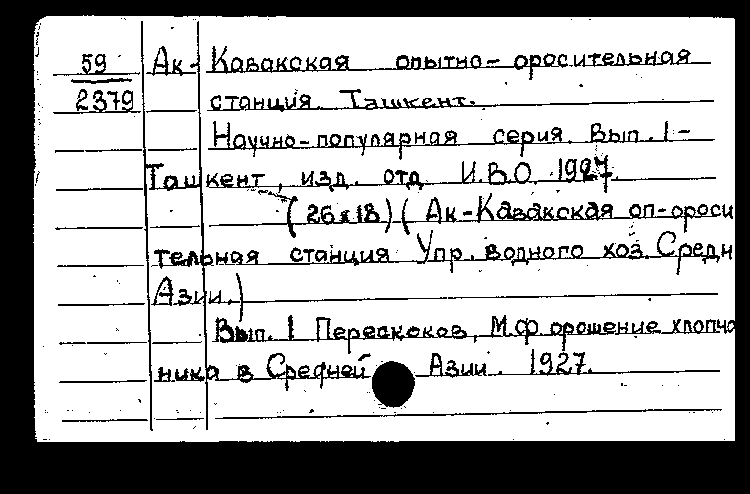 59
2379
Ак-Кавакская опытно-оросительная
станция. Ташкент.
Научно-популярная серия. Вып. 1-
Ташкент, изд. отд. И.В.О. 1927.
(26x18) (Ак-Кавакская оп-ороси
тельная станция Упр. водного хоз. Средн
Азии.)
Вып. 1 Перескоков, М.Ф. орошение хлопча
ника в Средней Азии. 1927.